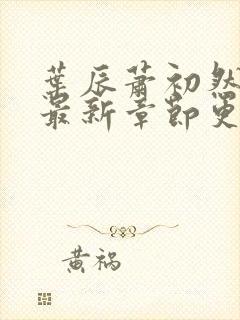 葉辰蕭初然
最新章節更
黃禍